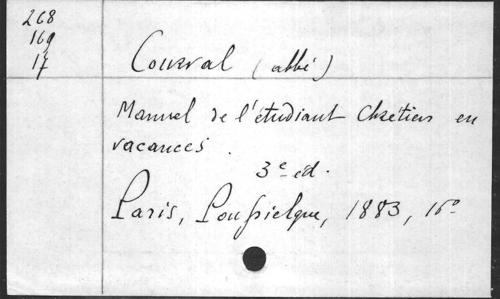 268
169
17
Courval (abbé)
Manuel de l'étudiant Chrétien en
vacances.
3e éd.
Paris, Poussielgue, 1883, 16°